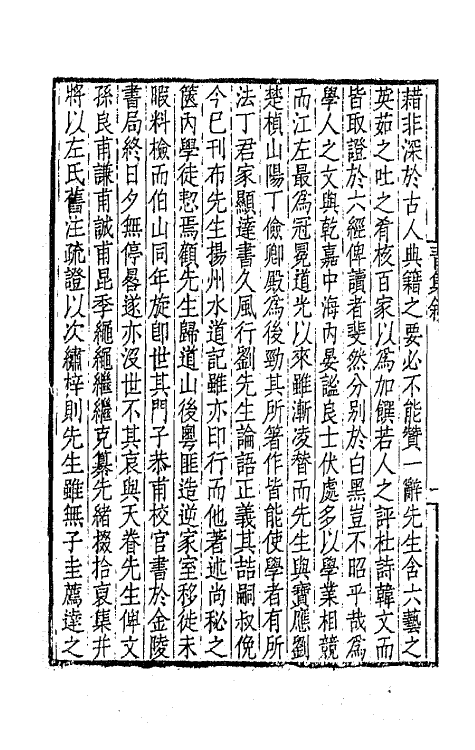 藉非深於古人典籍之要必不能贊一辭先生含六藝之
英茹之吐之肴核百家以爲加饌若人之評杜詩韓文而
皆取證於六經俾讀者斐然分別於白黑豈不昭乎哉爲
學人之文與乾嘉中海內晏謐良士伏處多以學業相競
而江左最爲冠冕道光以來雖漸凌替而先生與寶應劉
楚楨山陽丁儉卿殿爲後勁其所著作皆能使學者有所
法丁君家顯達書久風行劉先生論語正義其喆嗣叔俛
今已刊布先生揚州水道記雖亦印行而他著述尚秘之
篋內學徒惄焉顧先生歸道山後粵匪造逆家室移徙未
暇料檢而伯山同年旋卽世其門子恭甫校官書於金陵
書局終日夕無停晷遂亦沒世不其哀與天眷先生俾文
孫良甫謙甫誠甫昆季繩繩繼繼克纂先緒掇拾裒集幷
將以左氏舊注疏證以次繡梓則先生雖無子圭薦達之